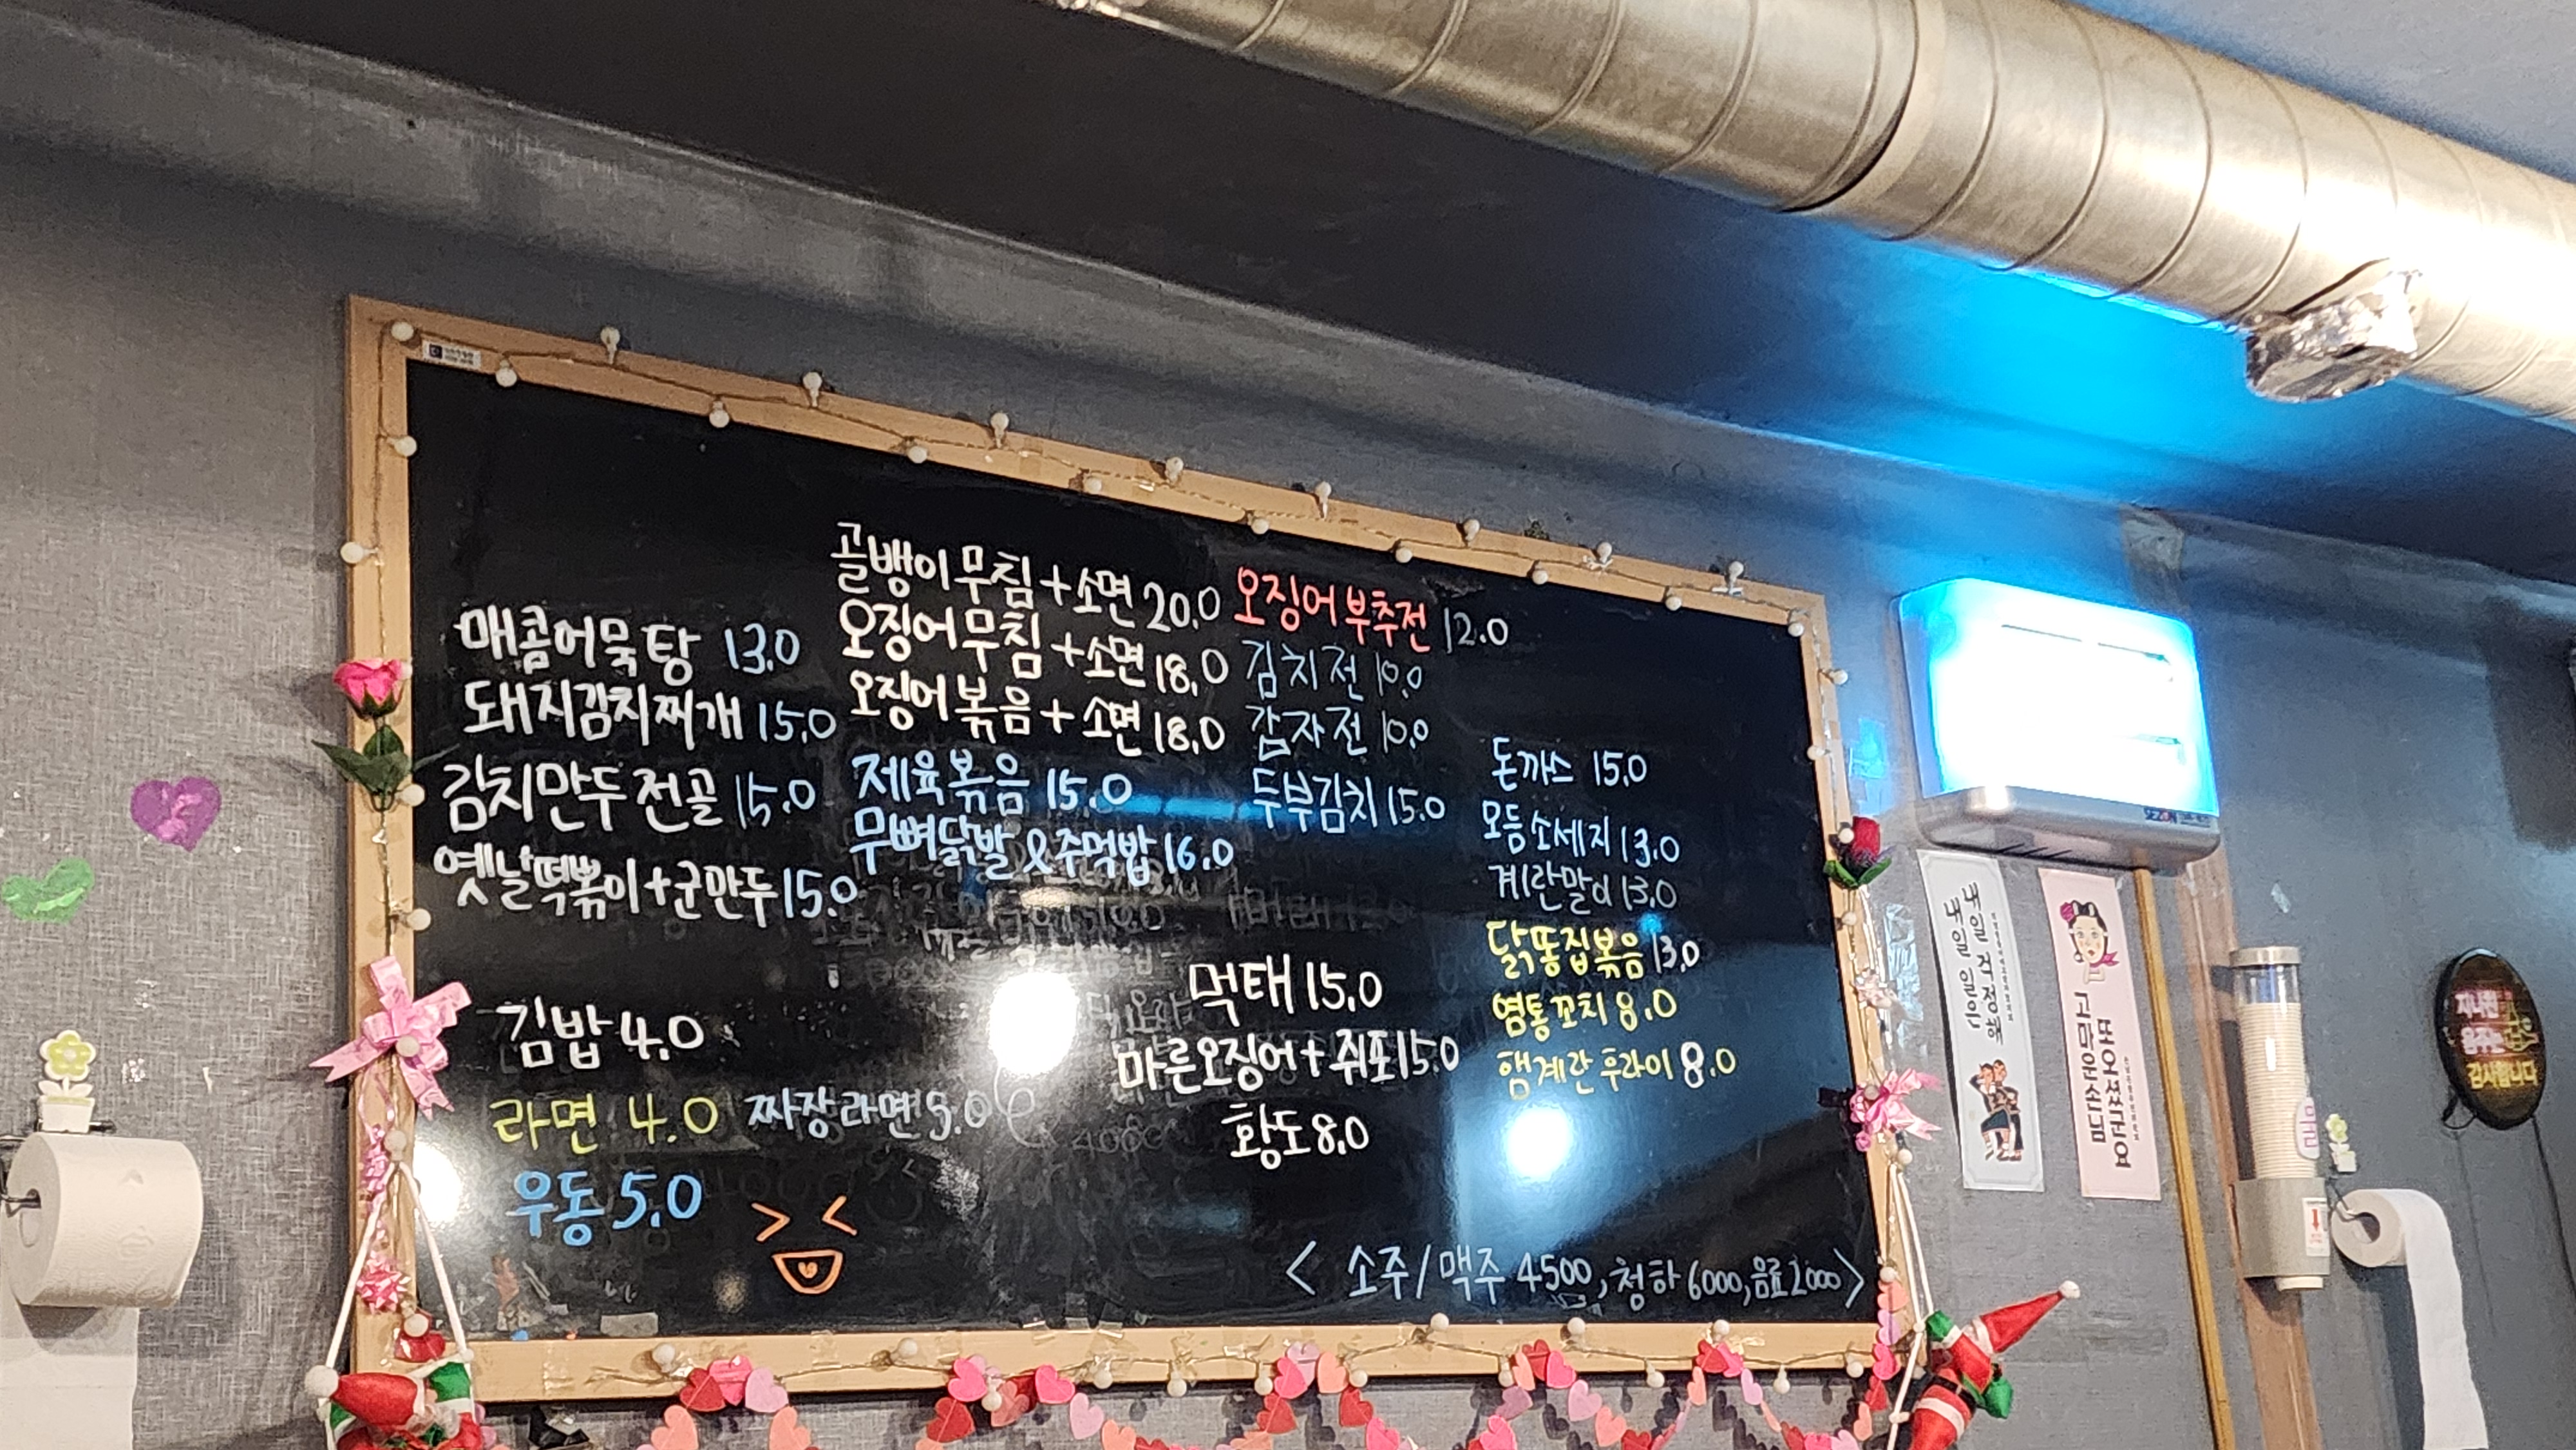 매콤어묵탕 13.0
돼지김치찌개 15.0
김치만두전골 15.0
옛날떡볶이+군만두 15.0
골뱅이무침+소면 20.0
오징어무침+소면 18.0
오징어볶음+소면 18.0
제육볶음 15.0
무뼈닭발&주먹밥 16.0
오징어부추전 12.0
김치전 10.0
감자전 10.0
두부김치 15.0
돈까스 15.0
모듬소세지 13.0
계란말이 13.0
닭똥집볶음 13.0
염통꼬치 8.0
햄계란후라이 8.0
김밥 4.0
라면 4.0 짜장라면 5.0
우동 5.0
먹태 15.0
마른오징어+쥐포 15.0
황도 8.0
< 소주/맥주 4500, 청하 6000, 음료 2000>
내일 걱정해
내일 일은
또 오셨군요
고마운 손님
지나친
음주는
감사합니다